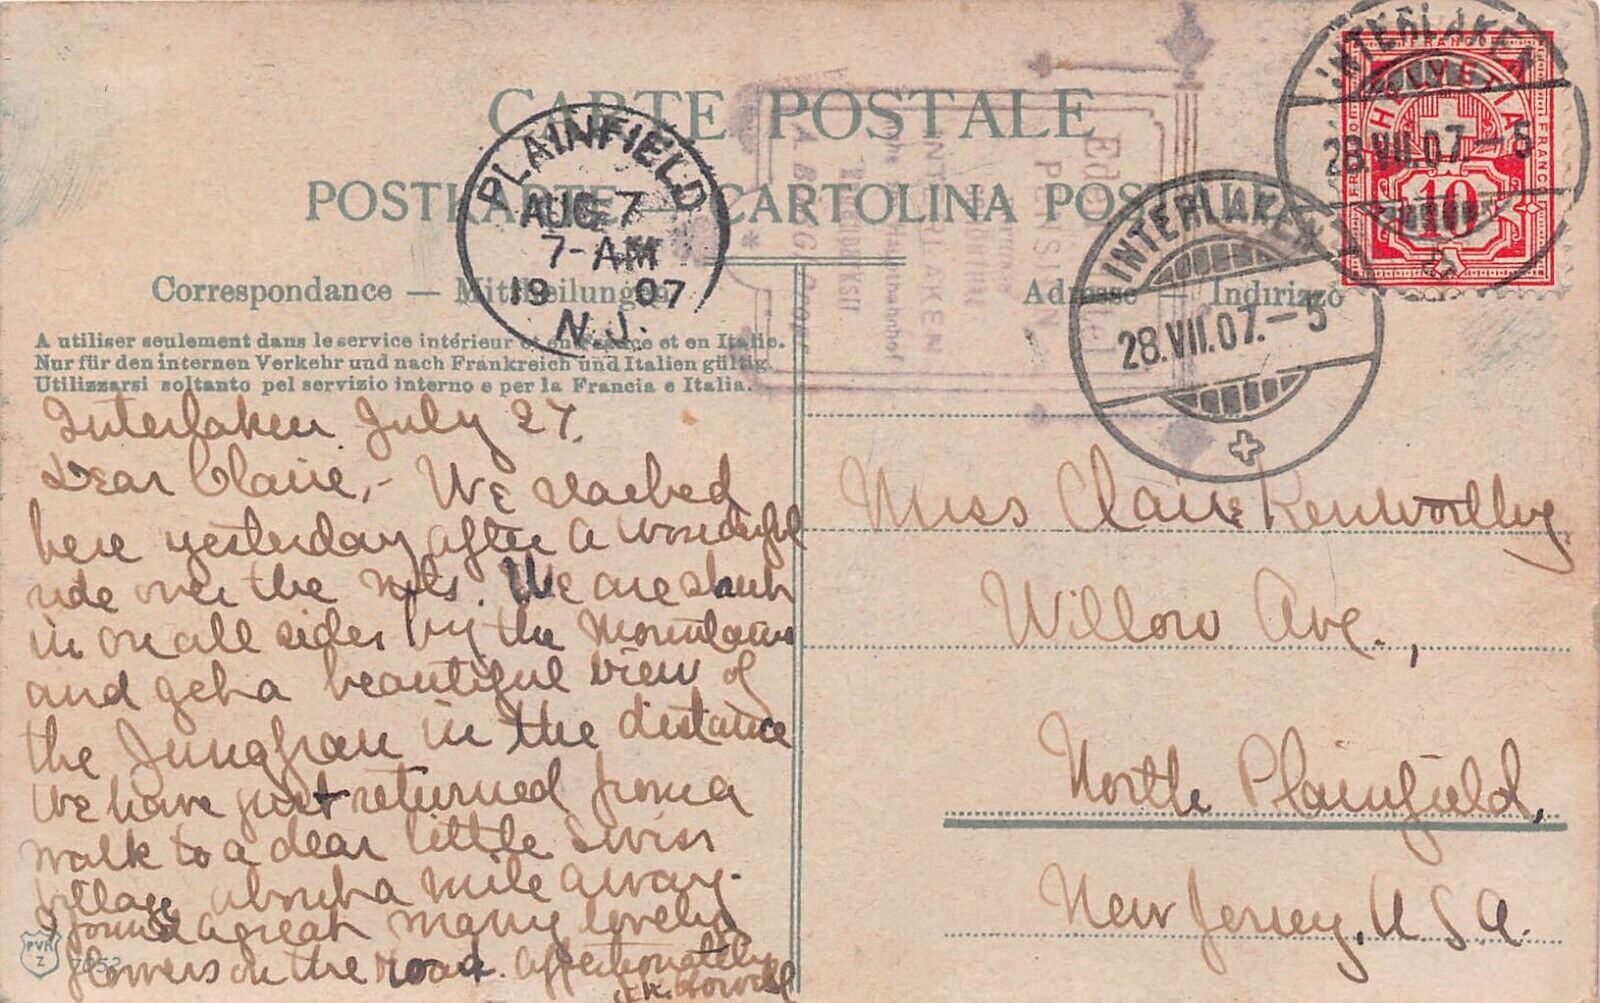 CARTE POSTALE
POSTKARTE — CARTOLINA POSTALE
Correspondance — Mittheilungen
Adresse — Indirizzo
A utiliser seulement dans le service intérieur et en France et en Italie.
Nur für den internen Verkehr und nach Frankreich und Italien gültig.
Utilizzarsi soltanto pel servizio interno e per la Francia e Italia.
PLAINFIELD
AUG 7
7-AM
19 07
N.J.
INTERLAKEN
28.VII.07.-5
INTERLAKEN
28.VII.07.-5
HELVETIA
FRANCO
FRANCO
FRANCO
10
PENSION
INTERLAKEN
Interlaken July 27.
Dear Claire,- We reached
here yesterday after a wonderful
ride over the mts. We are shut
in on all sides by the mountains
and get a beautiful view of
the Jungfrau in the distance
We have just returned from a
walk to a dear little Swiss
village about a mile away.
found a great many lovely
flowers on the road. Affectionately
Miss Claire Kenworthy
Willow Ave.,
North Plainfield,
New Jersey, U.S.A.
PVK
Z